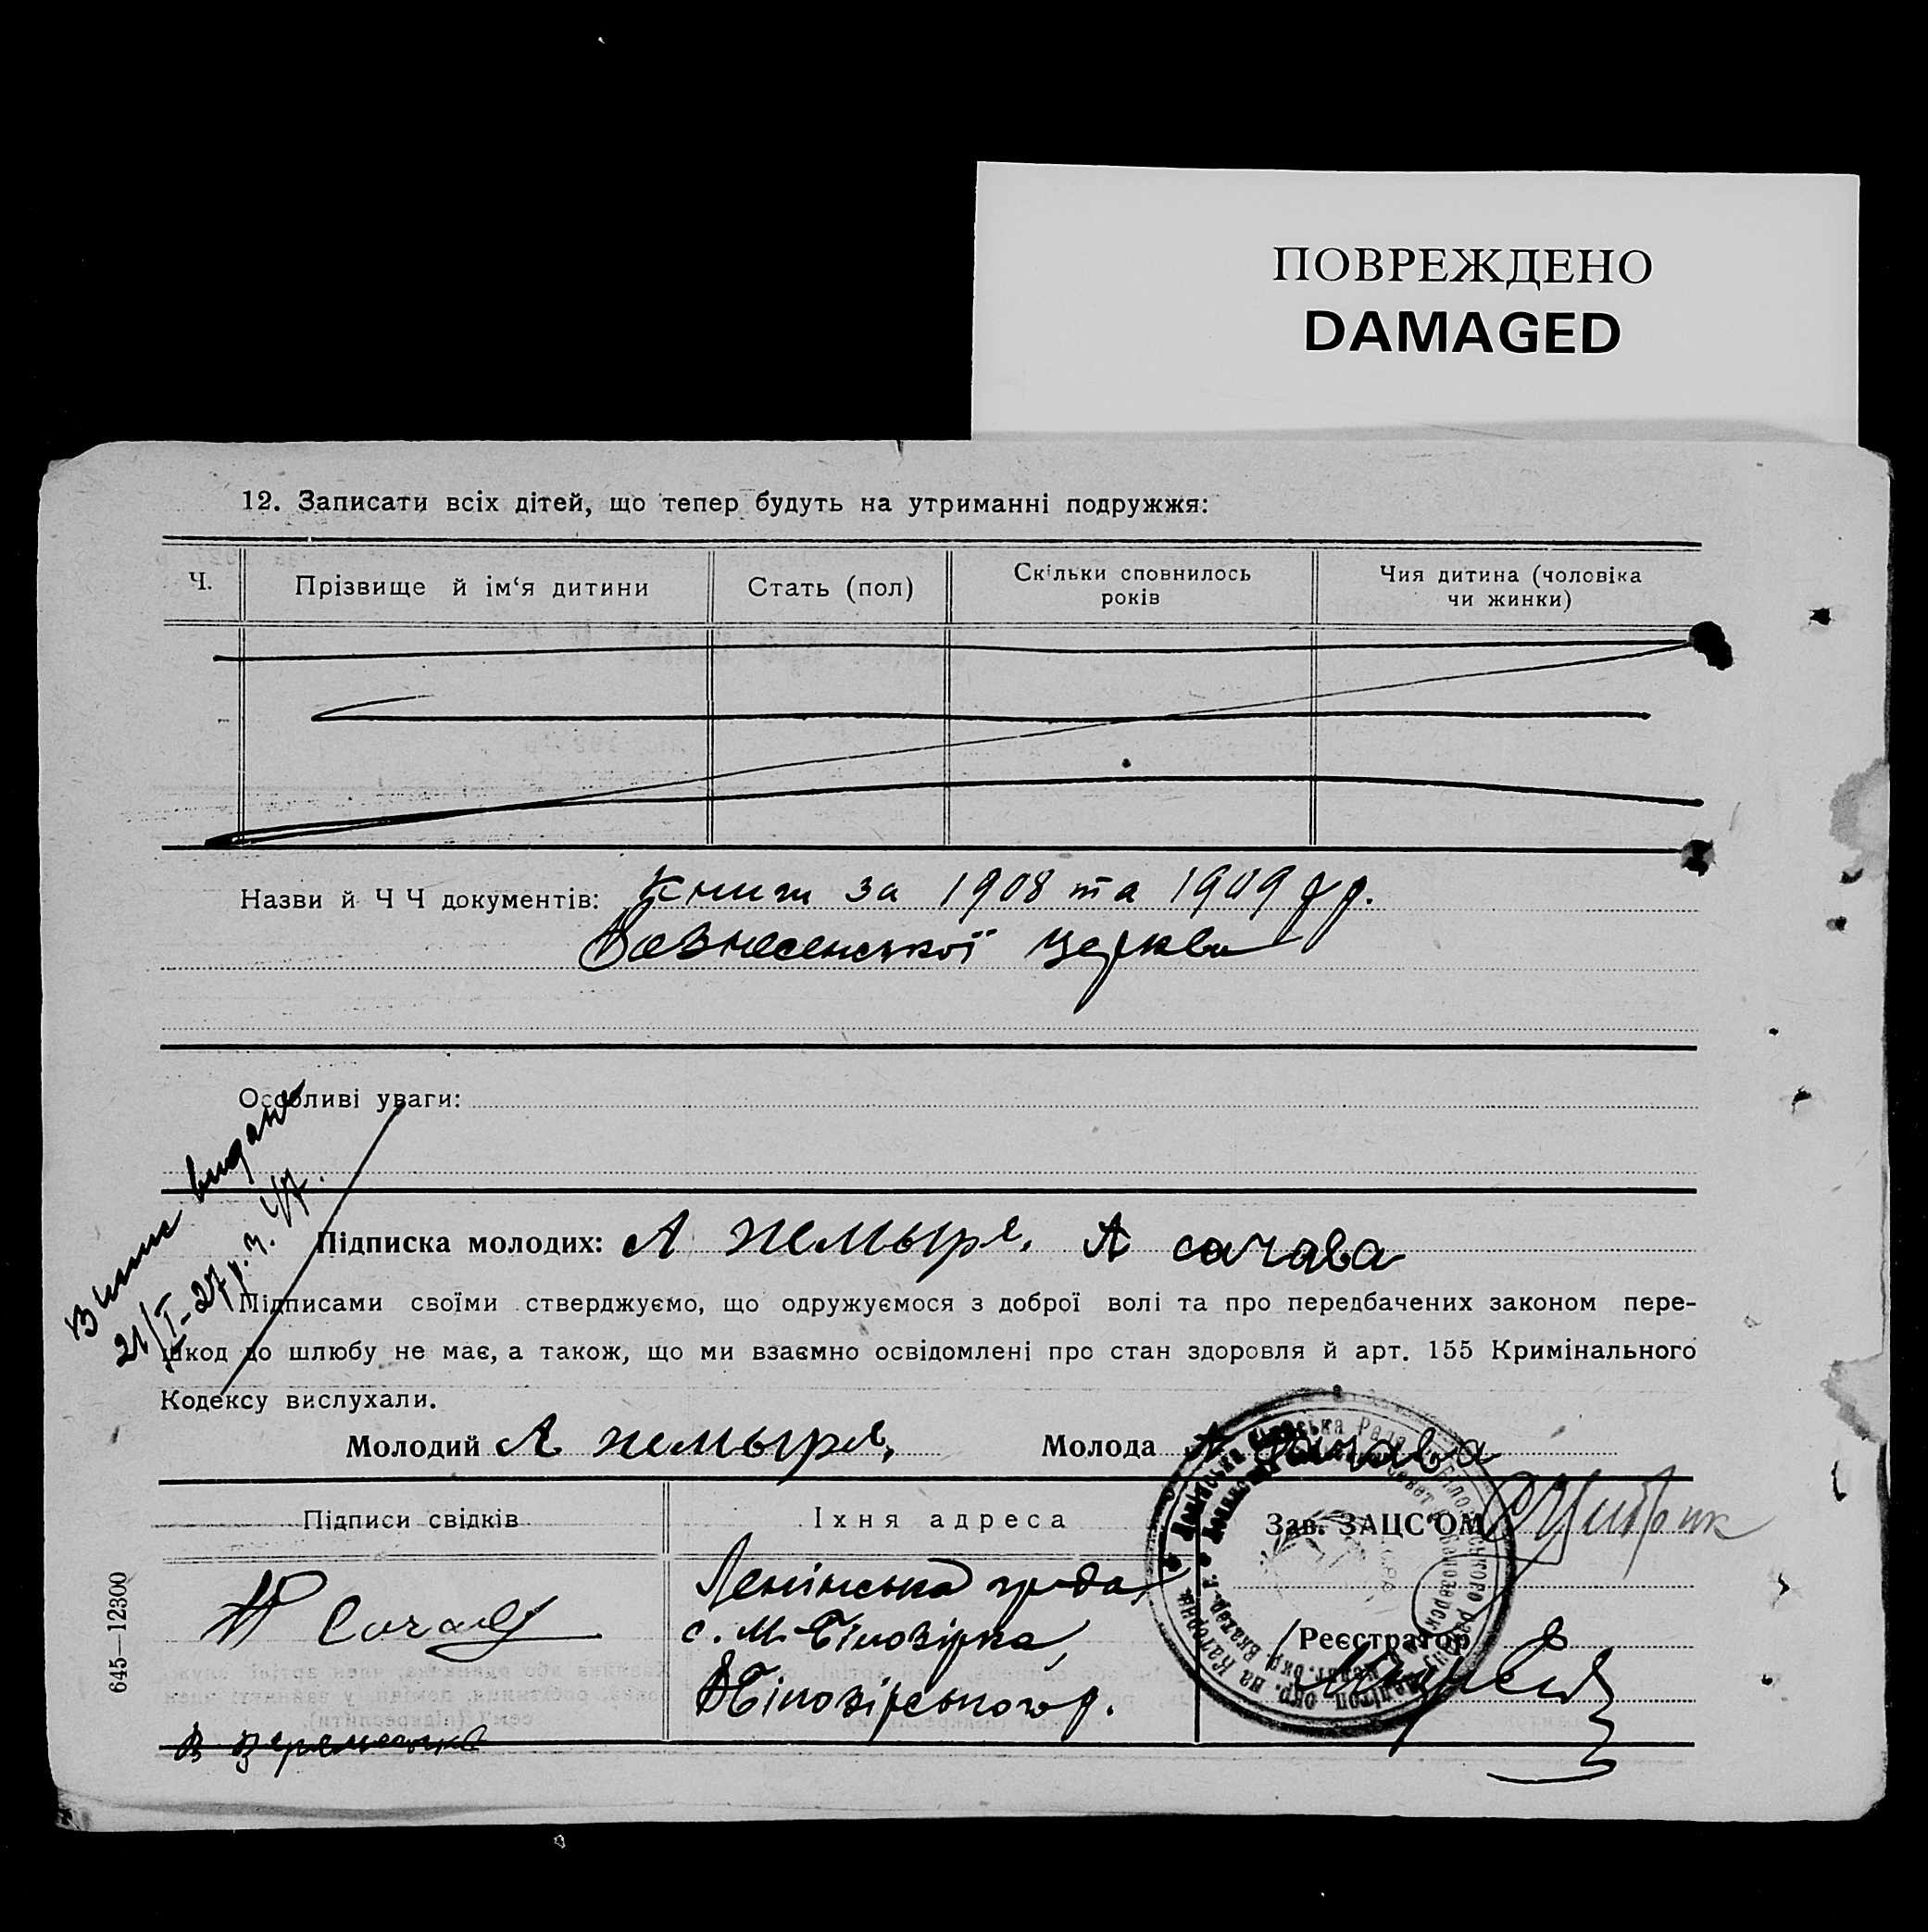 ПОВРЕЖДЕНО
DAMAGED
12. Записати всіх дітей, що тепер будуть на утриманні подружжя:
Ч.
Прізвище й ім‘я дитини
Стать (пол)
Скільки сповнилось
років
Чия дитина (чоловіка
чи жинки)
Назви й Ч Ч документів: Книги за 1908 та 1909 рр.
Вознесенської церкви
Особливі уваги:
Випис видано
21/I-27 р.
Підписка молодих: А жемыря, А сачава
Підписами своїми стверджуємо, що одружуємося з доброї волі та про передбачених законом пере-
шкод до шлюбу не має, а також, що ми взаємно освідомлені про стан здоровля й арт. 155 Кримінального
Кодексу вислухали.
Молодий А жемыря, Молода А сачава
Підписи свідків
Їхня адреса
Зав. ЗАЦС‘ОМ
Ленінська
с. М-Білозірка,
Білозірського р.
Реєстратор
645—12300